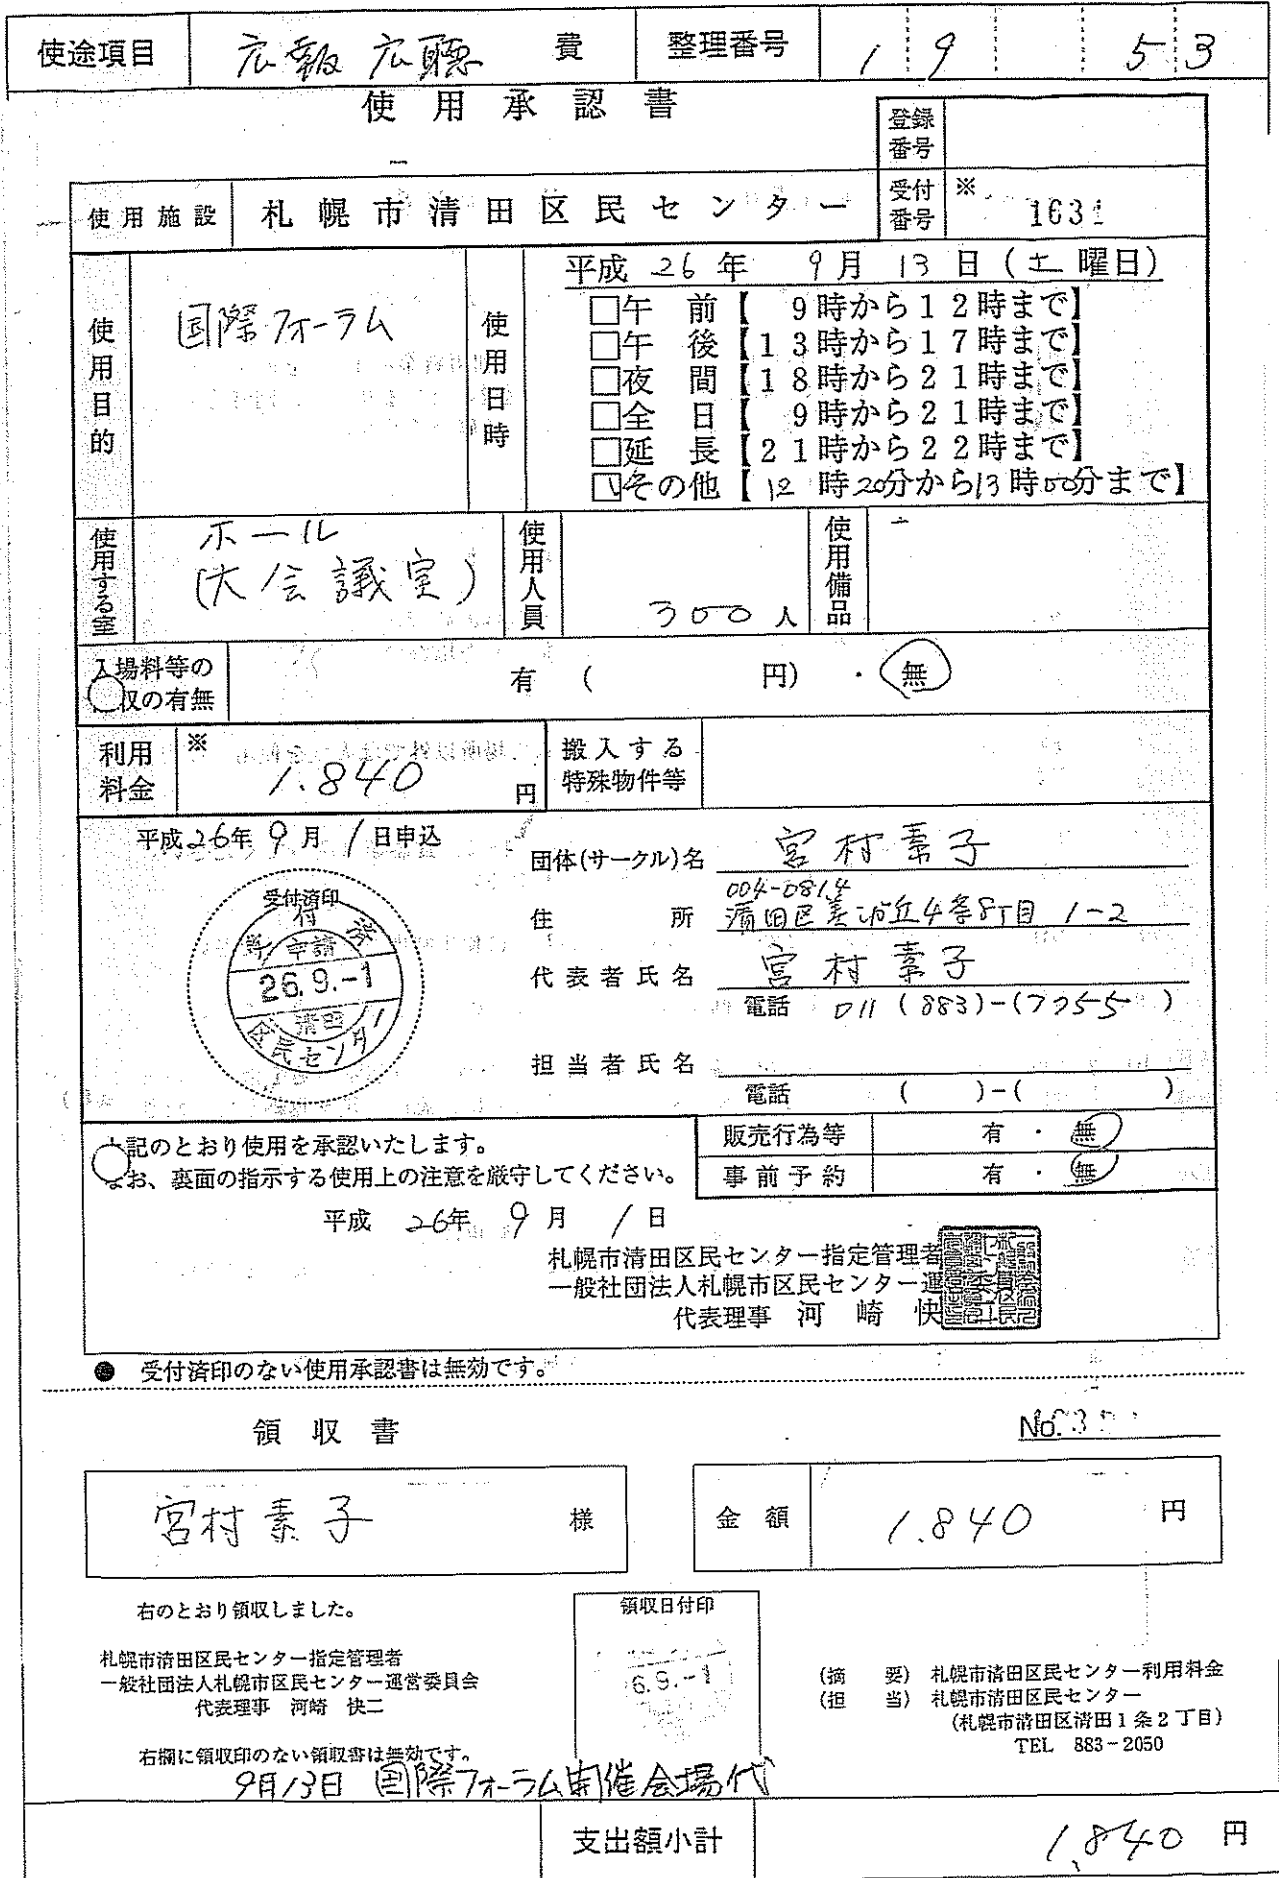 使途項目 広報広聴 費 整理番号 1 9 5 3
使用承認書
登録番号
使用施設 札幌市清田区民センター 受付番号 ※ 1631
使用目的 国際フォーラム
使用日時 平成 26 年 9 月 13 日 (土 曜日)
□午 前【 9時から12時まで】
□午 後【13時から17時まで】
□夜 間【18時から21時まで】
□全 日【 9時から21時まで】
□延 長【21時から22時まで】
☑その他【12 時20分から13時00分まで】
使用する室 ホール (大会議室) 使用人員 300 人 使用備品
入場料等の 収の有無 有 ( 円) ・ 無
利用料金 ※ 1.840 円 搬入する特殊物件等
平成26年 9 月 1 日申込
団体(サークル)名 宮村素子
受付済印
004-0814
住 所 清田区美しが丘4条8丁目 1-2
申請
26.9.-1
清田
区民センター
代表者氏名 宮村素子
電話 011 (883)-(7755 )
担当者氏名
電話 ( )-( )
記のとおり使用を承認いたします。
お、裏面の指示する使用上の注意を厳守してください。
販売行為等 有 ・ 無
事前予約 有 ・ 無
平成 26年 9 月 1 日
札幌市清田区民センター指定管理者
一般社団法人札幌市区民センター運
代表理事 河 崎 快
● 受付済印のない使用承認書は無効です。
領収書 No.
宮村素子 様 金額 1.840 円
右のとおり領収しました。
領収日付印
札幌市清田区民センター指定管理者
一般社団法人札幌市区民センター運営委員会
代表理事 河崎 快二
6.9.-1
(摘 要) 札幌市清田区民センター利用料金
(担 当) 札幌市清田区民センター
(札幌市清田区清田1条2丁目)
TEL 883-2050
右欄に領収印のない領収書は無効です。
9月13日 国際フォーラム開催会場代
支出額小計 1,840 円